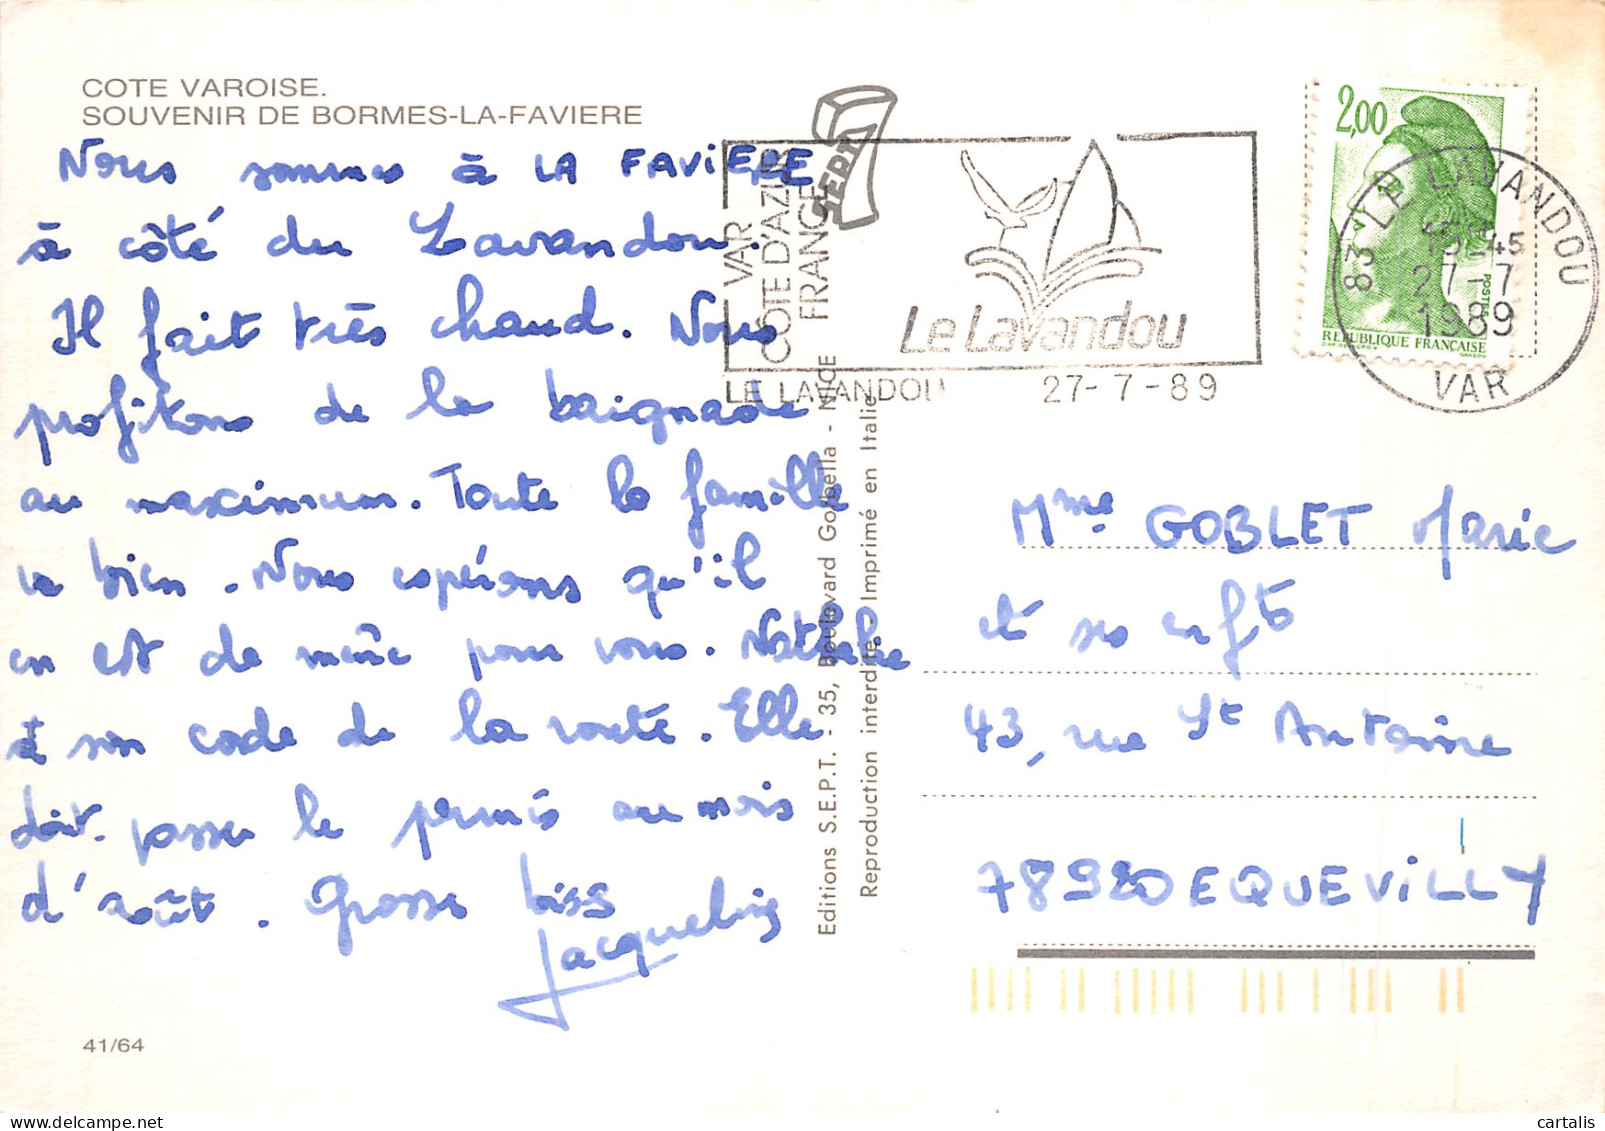 COTE VAROISE.
SOUVENIR DE BORMES-LA-FAVIERE
Nous sommes à LA FAVIERE
à côté du Lavandou.
Il fait très chaud. Nous
profitons de la baignade
au maximum. Toute la famille
va bien. Nous espérons qu'il
en est de même pour vous. Nathalie
a son code de la route. Elle
doit passer le permis au mois
d'août. Grosses biss
Jacqueline
41/64
Editions S.E.P.T. - 35, Boulevard Gorbella - NICE
Reproduction interdite - Imprimé en Italie
SEPT
VAR
COTE D'AZUR
FRANCE
Le Lavandou
LE LAVANDOU 27-7-89
2,00
POSTES
REPUBLIQUE FRANÇAISE
83 LE LAVANDOU
15-45
27-7
1989
VAR
Mme GOBLET Marie
et ses enfts
43, rue St Antoine
78920 EQUEVILLY
cartalis